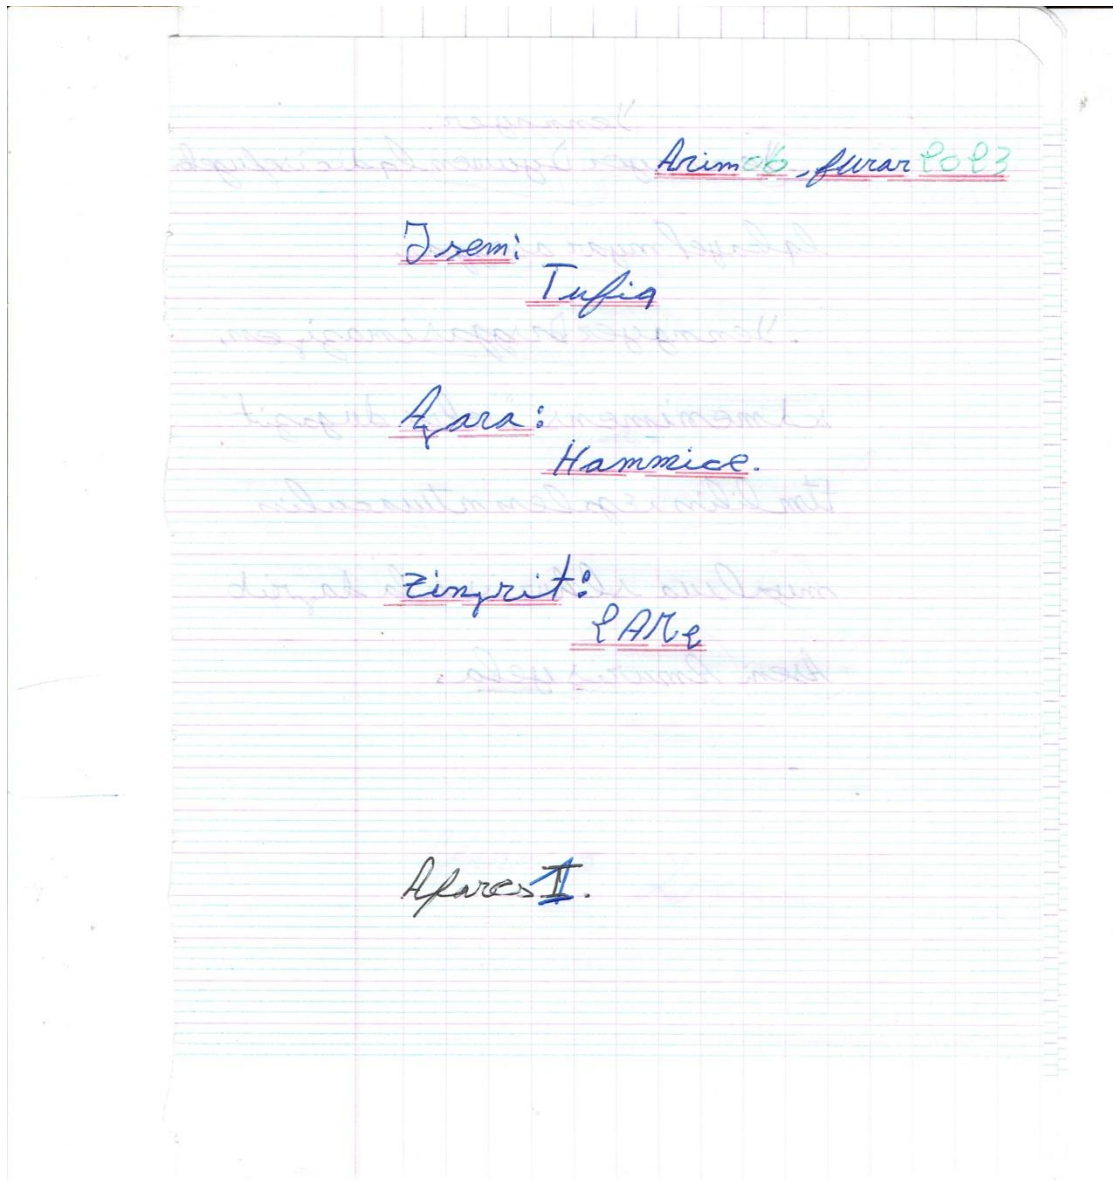 Arim 06, furar 2023
Isem:
Tufiq
Aẓara:
Hammice.
Tinẓrit:
2AM2
Afares II.